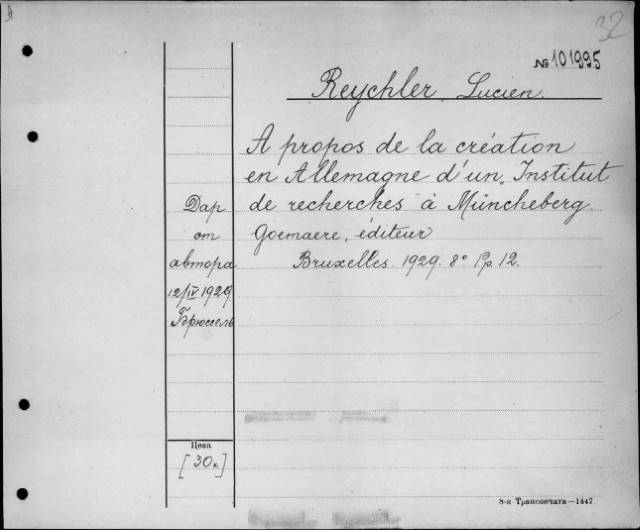 A
32
№ 101995
Reychler, Lucien.
A propos de la création
en Allemagne d'un Institut
de recherches à Müncheberg
Goemaere, éditeur
Bruxelles. 1929. 8° Pp. 12.
Дар
от
автора
12/IV 1929
Брюссель
Цена
[30к]
8-я Транспечати—1447.